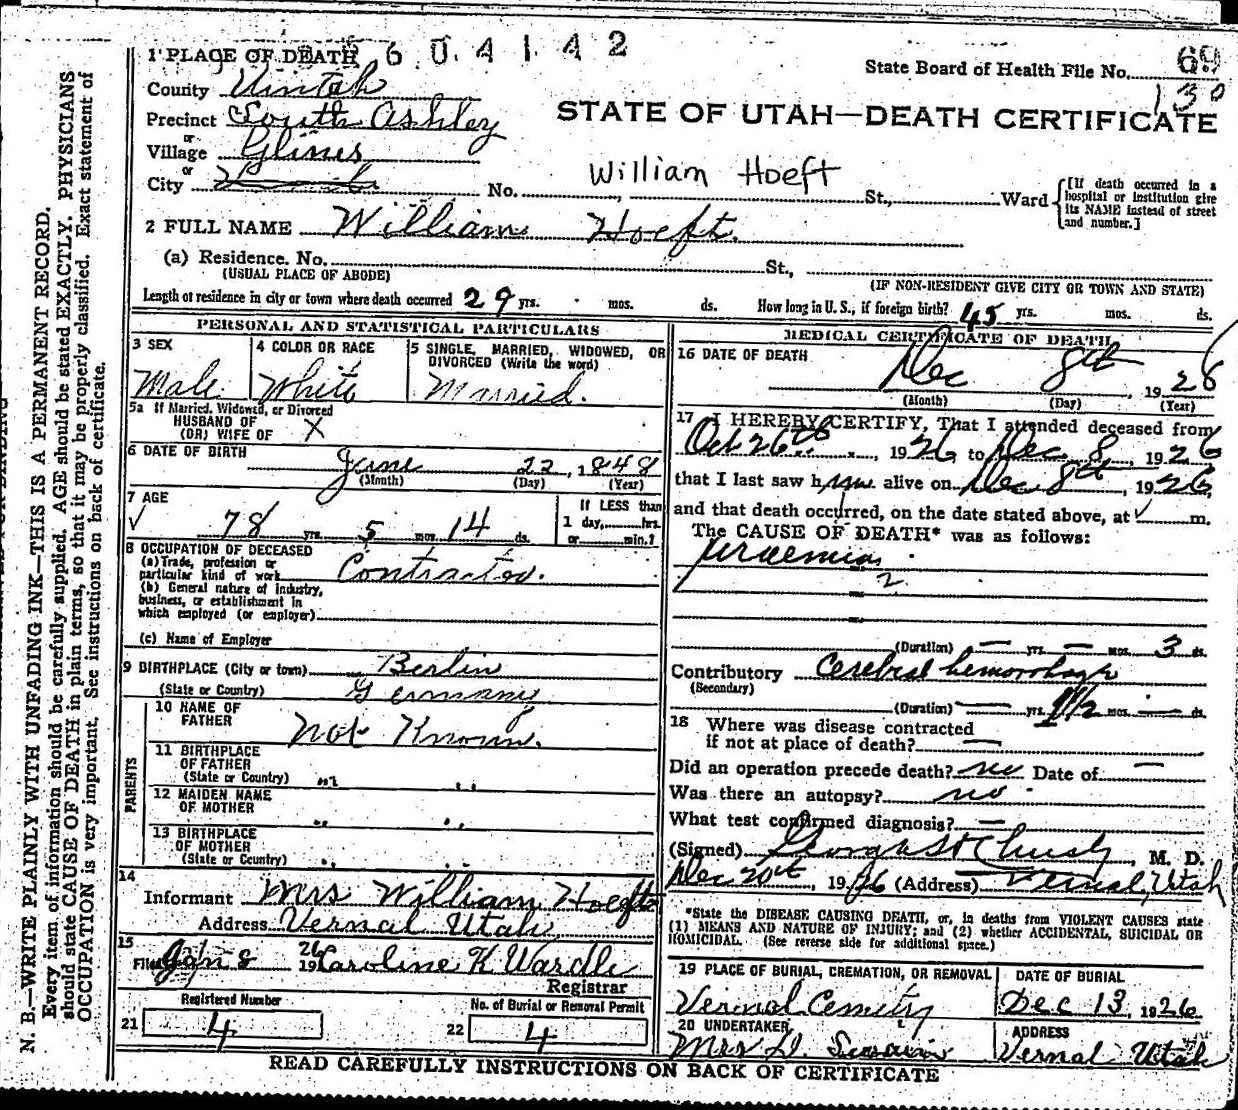 1 PLACE OF DEATH 604142
State Board of Health File No. 69
130
County Uintah
STATE OF UTAH—DEATH CERTIFICATE
Precinct South Ashley
or
Village Glines
or
City No. St., Ward
William Hoeft
[If death occurred in a hospital or institution give its NAME instead of street and number.]
2 FULL NAME William Hoeft.
(a) Residence. No. St.,
(USUAL PLACE OF ABODE) (IF NON-RESIDENT GIVE CITY OR TOWN AND STATE)
Length of residence in city or town where death occurred 29 yrs. mos. ds. How long in U. S., if foreign birth? 45 yrs. mos. ds.
PERSONAL AND STATISTICAL PARTICULARS
3 SEX Male
4 COLOR OR RACE White
5 SINGLE, MARRIED, WIDOWED, OR DIVORCED (Write the word) Married.
5a If Married, Widowed, or Divorced
HUSBAND OF
(OR) WIFE OF X
6 DATE OF BIRTH June 22, 1848
(Month) (Day) (Year)
7 AGE
78 yrs. 5 mos. 14 ds.
If LESS than
1 day, hrs.
or min.?
8 OCCUPATION OF DECEASED
(a) Trade, profession or
particular kind of work
(b) General nature of industry,
business, or establishment in
which employed (or employer)
(c) Name of Employer
9 BIRTHPLACE (City or town) Berlin
(State or Country) Germany
PARENTS
10 NAME OF FATHER Not Known.
11 BIRTHPLACE
OF FATHER
(State or Country) " "
12 MAIDEN NAME
OF MOTHER " "
13 BIRTHPLACE
OF MOTHER
(State or Country) " "
14
Informant Mrs William Hoeft
Address Vernal Utah
15
Filed Jan 8 1926 Caroline K Wardle
Registrar
Registered Number
21 4
No. of Burial or Removal Permit
22 4
MEDICAL CERTIFICATE OF DEATH
16 DATE OF DEATH
Dec 8th, 1926
(Month) (Day) (Year)
17 I HEREBY CERTIFY, That I attended deceased from
Oct 26th, 1926 to Dec 8, 1926
that I last saw him alive on Dec 8th, 1926
and that death occurred, on the date stated above, at m.
The CAUSE OF DEATH* was as follows:
Uraemia
2
(Duration) — yrs. — mos. 3 ds.
Contributory Cerebral hemorrhage
(Secondary)
(Duration) — yrs. 1 1/2 mos. — ds.
18 Where was disease contracted
if not at place of death? —
Did an operation precede death? no Date of —
Was there an autopsy? no
What test confirmed diagnosis? —
(Signed) M. D.
Dec 20th, 1926 (Address) Vernal, Utah
*State the DISEASE CAUSING DEATH, or, in deaths from VIOLENT CAUSES state
(1) MEANS AND NATURE OF INJURY; and (2) whether ACCIDENTAL, SUICIDAL OR
HOMICIDAL. (See reverse side for additional space.)
19 PLACE OF BURIAL, CREMATION, OR REMOVAL
Vernal Cemetry
DATE OF BURIAL
Dec 13, 1926
20 UNDERTAKER
Mrs D. Swain
ADDRESS
Vernal Utah
READ CAREFULLY INSTRUCTIONS ON BACK OF CERTIFICATE
N. B.—WRITE PLAINLY WITH UNFADING INK—THIS IS A PERMANENT RECORD.
Every item of information should be carefully supplied. AGE should be stated EXACTLY. PHYSICIANS
should state CAUSE OF DEATH in plain terms, so that it may be properly classified. Exact statement of
OCCUPATION is very important. See instructions on back of certificate.